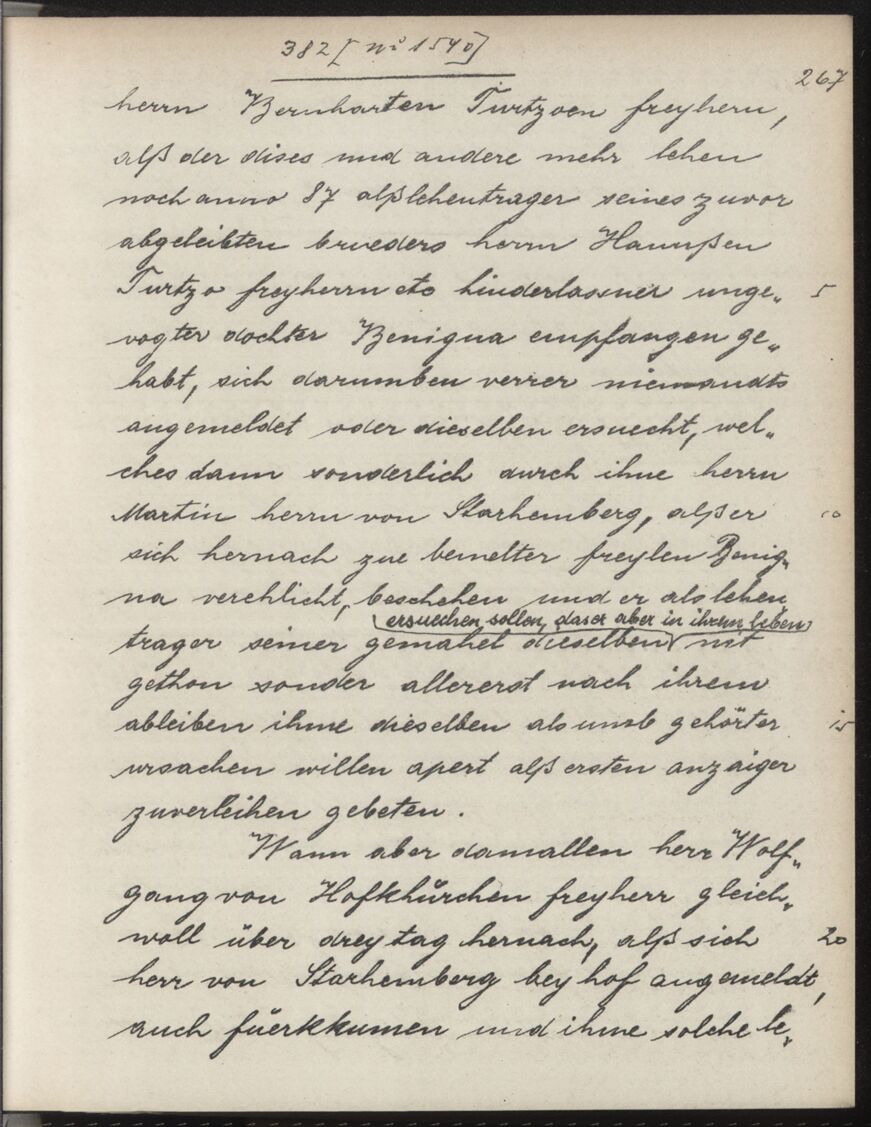 382 [Nº 1540]
267
herrn Bernharten Turtzoen freyherrn,
alß der dises und andere mehr lehen
noch anno 87 alß lehentrager seines zuvor
abgeleibten brueders herrn Hannßen
Turtzo freyherrn etc hinderlassner unge„ 5
vogter dochter Benigna empfangen ge„
habt, sich darumben verrer niemandts
angemeldet oder dieselben ersuecht, wel„
ches dann sonderlich durch ihne herrn
Martin herrn von Starhemberg, alß er 10
sich hernach zue bemelter freylen Benig„
na verehlicht, beschehen und er als lehen
ersuechen sollen, das er aber in ihrem leben
trager seiner gemahel dieselben nit
gethon sonder allererst nach ihrem
ableiben ihme dieselben als umb gehörter 15
ursachen willen apert alß ersten anzaiger
zuverleihen gebeten.
Wann aber damallen herr Wolf„
gang von Hofkhürchen freyherr gleich„
woll über drey tag hernach, alß sich 20
herr von Starhemberg bey hof angemeldt,
auch füerkkumen und ihme solche le„